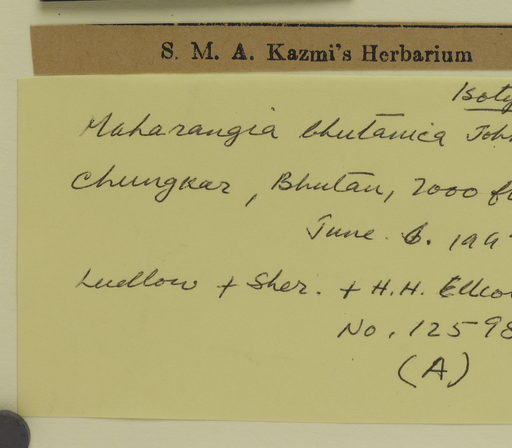 S. M. A. Kazmi's Herbarium
Isoty
Maharangia bhutanica Joh
Chungkar, Bhutan, 7000 f
June 6. 194
Ludlow + Sher. + H.H. Elko
No. 12598
(A)